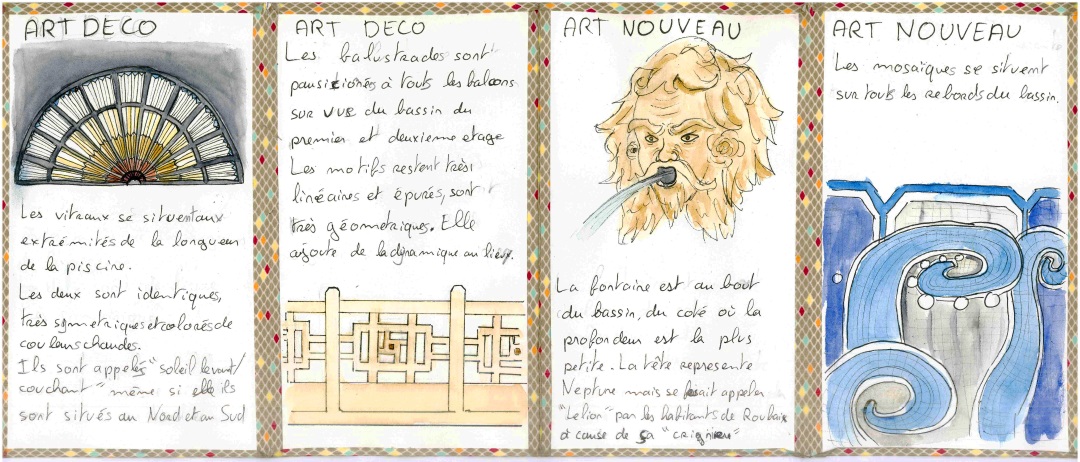 ART DECO
Les vitraux se situentaux
extrémités de la longueur
de la piscine.
Les deux sont identiques,
très symetriques et colorés de
couleurs chaudes.
Ils sont appelés "soleil levant/
couchant" même si elle ils
sont situés au Nord et au Sud
ART DECO
Les balustrades sont
pausitionés à touts les balcons
sur vue du bassin du
premier et deuxieme etage
Les motifs restent très
linéaires et épurés, sont
très géometriques. Elle
ajoute de la dynamique au lieux.
ART NOUVEAU
La fontaine est au bout
du bassin, du coté où la
profondeur est la plus
petite. La tête represente
Neptune mais se faisait appeler
"Le lion" par les habitants de Roubaix
à cause de sa "crignière"
ART NOUVEAU
Les mosaïques se situent
sur touts les rebords du bassin.